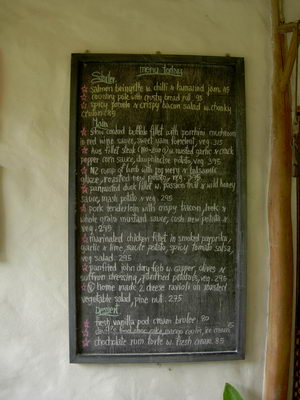 menu today
Starter
salmon beignette w. chilli & tamarind jam. 115
country pate with crusty bread roll. 95
spicy tomato & crispy bacon salad w. chunky
Main
slow cooked buffalo fillet with porcini mushroom
in red wine sauce, sweet yam fondent, veg. 345
w roasted garlic & crack
pepper corn sauce, dauphinoise potato, veg.
NZ rump of lamb with rosemary & balsamic
glaze, roasted new potato, veg.
panroasted duck fillet w. passion fruit & wild honey
sauce, mash potato & veg. 295
pork tenderloin with crispy bacon, leek &
whole grain mustard sauce, crush new potato &
veg. 295
marinated chicken fillet in smoked paprika,
garlic & lime, saute potato, spicy tomato salsa,
veg salad. 295
panfried john dory fish w. caper, olives &
saffron dressing, panfried potatoes, veg. 295
home made 2 cheese ravioli on roasted
vegetable salad, pine nut. 275
Dessert
fresh vanilla pod cream brulee. 80
ice cream
chocholate rum torte w. fresh cream. 85